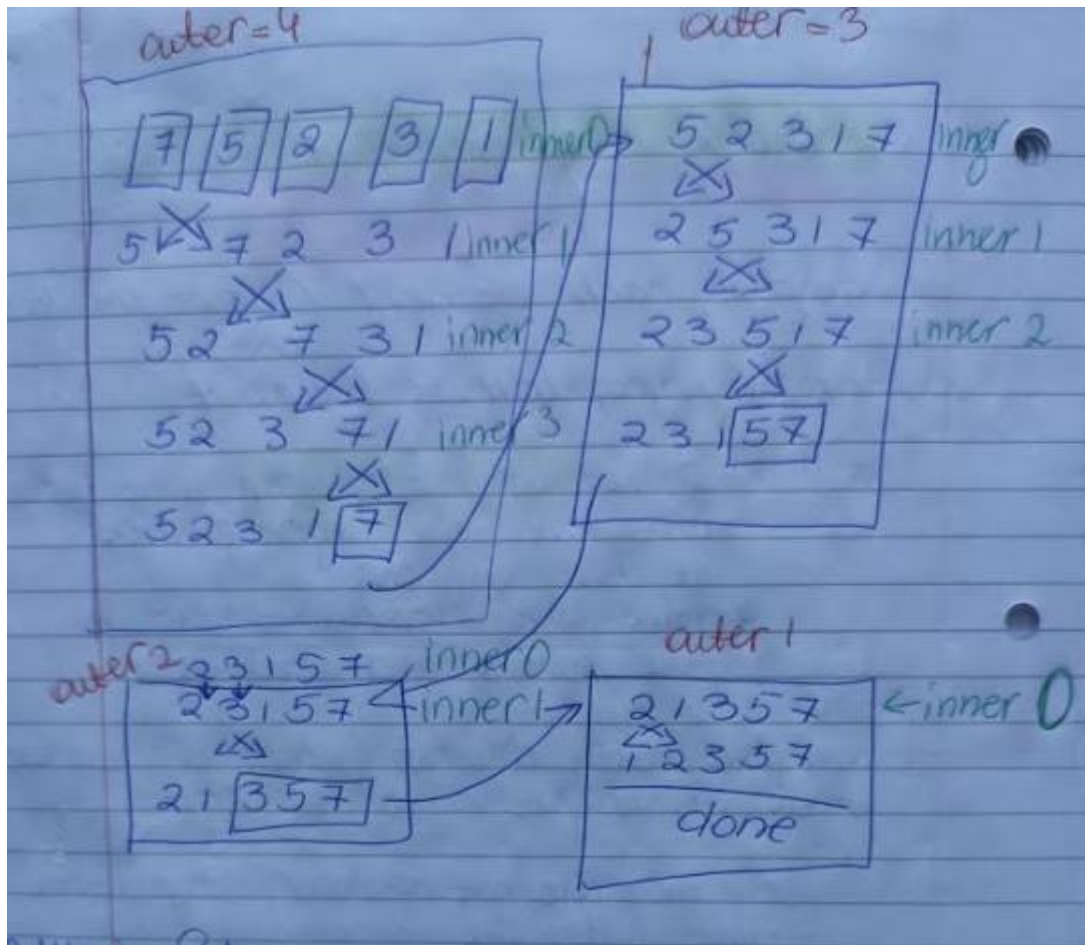 outer=4
7 5 2 3 1 inner0
5 7 2 3 1 inner 1
5 2 7 3 1 inner 2
5 2 3 7 1 inner 3
5 2 3 1 7
outer = 3
5 2 3 1 7 inner
2 5 3 1 7 inner 1
2 3 5 1 7 inner 2
2 3 1 5 7
outer 2
2 3 1 5 7 inner 0
2 3 1 5 7 inner 1
2 1 3 5 7
outer 1
2 1 3 5 7 inner 0
1 2 3 5 7
done